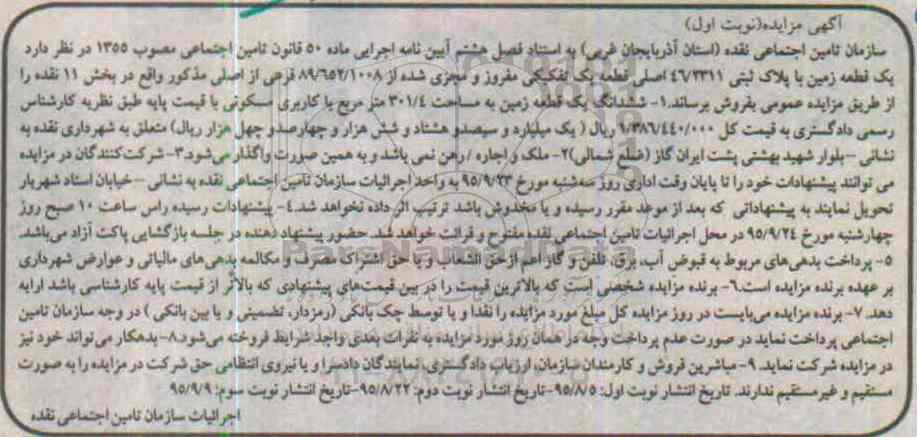 آگهی مزایده(نوبت اول)
سازمان تامین اجتماعی نقده (استان آذربایجان غربی) به استناد فصل هشتم آیین نامه اجرایی ماده ۵۰ قانون تامین اجتماعی مصوب ۱۳۵۵ در نظر دارد
یک قطعه زمین با پلاک ثبتی ۴۶/۳۳۱۱ اصلی قطعه یک تفکیکی مفروز و مجزی شده از ۸۹/۶۵۲/۱۰۰۸ فرعی از اصلی مذکور واقع در بخش ۱۱ نقده را
از طریق مزایده عمومی بفروش برساند.۱- ششدانگ یک قطعه زمین به مساحت ۳۰۱/۴ متر مربع با کاربری مسکونی با قیمت پایه طبق نظریه کارشناس
رسمی دادگستری به قیمت کل ۱/۳۸۶/۴۴۰/۰۰۰ ریال ( یک میلیارد و سیصدو هشتاد و شش هزار و چهارصدو چهل هزار ریال) متعلق به شهرداری نقده به
نشانی –بلوار شهید بهشتی پشت ایران گاز (ضلع شمالی)۲- ملک و اجاره / رهن نمی باشد و به همین صورت واگذار می‌شود.۳- شرکت‌کنندگان در مزایده
می توانند پیشنهادات خود را تا پایان وقت اداری روز سه‌شنبه مورخ ۹۵/۹/۲۳ به واحد اجرائیات سازمان تامین اجتماعی نقده به نشانی –خیابان استاد شهریار
تحویل نمایند به پیشنهاداتی که بعد از موعد مقرر رسیده و یا مخدوش باشد ترتیب اثر داده نخواهد شد.۴- پیشنهادات رسیده راس ساعت ۱۰ صبح روز
چهارشنبه مورخ ۹۵/۹/۲۴ در محل اجرائیات تامین اجتماعی نقده مفتوح و قرائت خواهد شد. حضور پیشنهاد دهنده در جلسه بازگشایی پاکت آزاد می‌باشد.
۵- پرداخت بدهی‌های مربوط به قبوض آب، برق، تلفن و گاز اعم ازحق انشعاب و یا حق اشتراک مصرف و مکالمه بدهی‌های مالیاتی و عوارض شهرداری
بر عهده برنده مزایده است.۶- برنده مزایده شخصی است که بالاترین قیمت را در بین قیمت‌های پیشنهادی که بالاتر از قیمت پایه کارشناسی باشد ارایه
دهد. ۷- برنده مزایده می‌بایست در روز مزایده کل مبلغ مورد مزایده را نقدا و یا توسط چک بانکی (رمزدار، تضمینی و یا بین بانکی ) در وجه سازمان تامین
اجتماعی پرداخت نماید در صورت عدم پرداخت وجه در همان روز مورد مزایده به نفرات بعدی واجد شرایط فروخته می‌شود.۸-بدهکار می‌تواند خود نیز
در مزایده شرکت نماید. ۹-مباشرین فروش و کارمندان سازمان، ارزیاب دادگستری، نمایندگان دادسرا و یا نیروی انتظامی حق شرکت در مزایده را به صورت
مستقیم و غیرمستقیم ندارند. تاریخ انتشار نوبت اول: ۹۵/۸/۵-تاریخ انتشار نوبت دوم: ۹۵/۸/۲۲-تاریخ انتشار نوبت سوم: ۹۵/۹/۹
اجرائیات سازمان تامین اجتماعی نقده
ParsNamadData